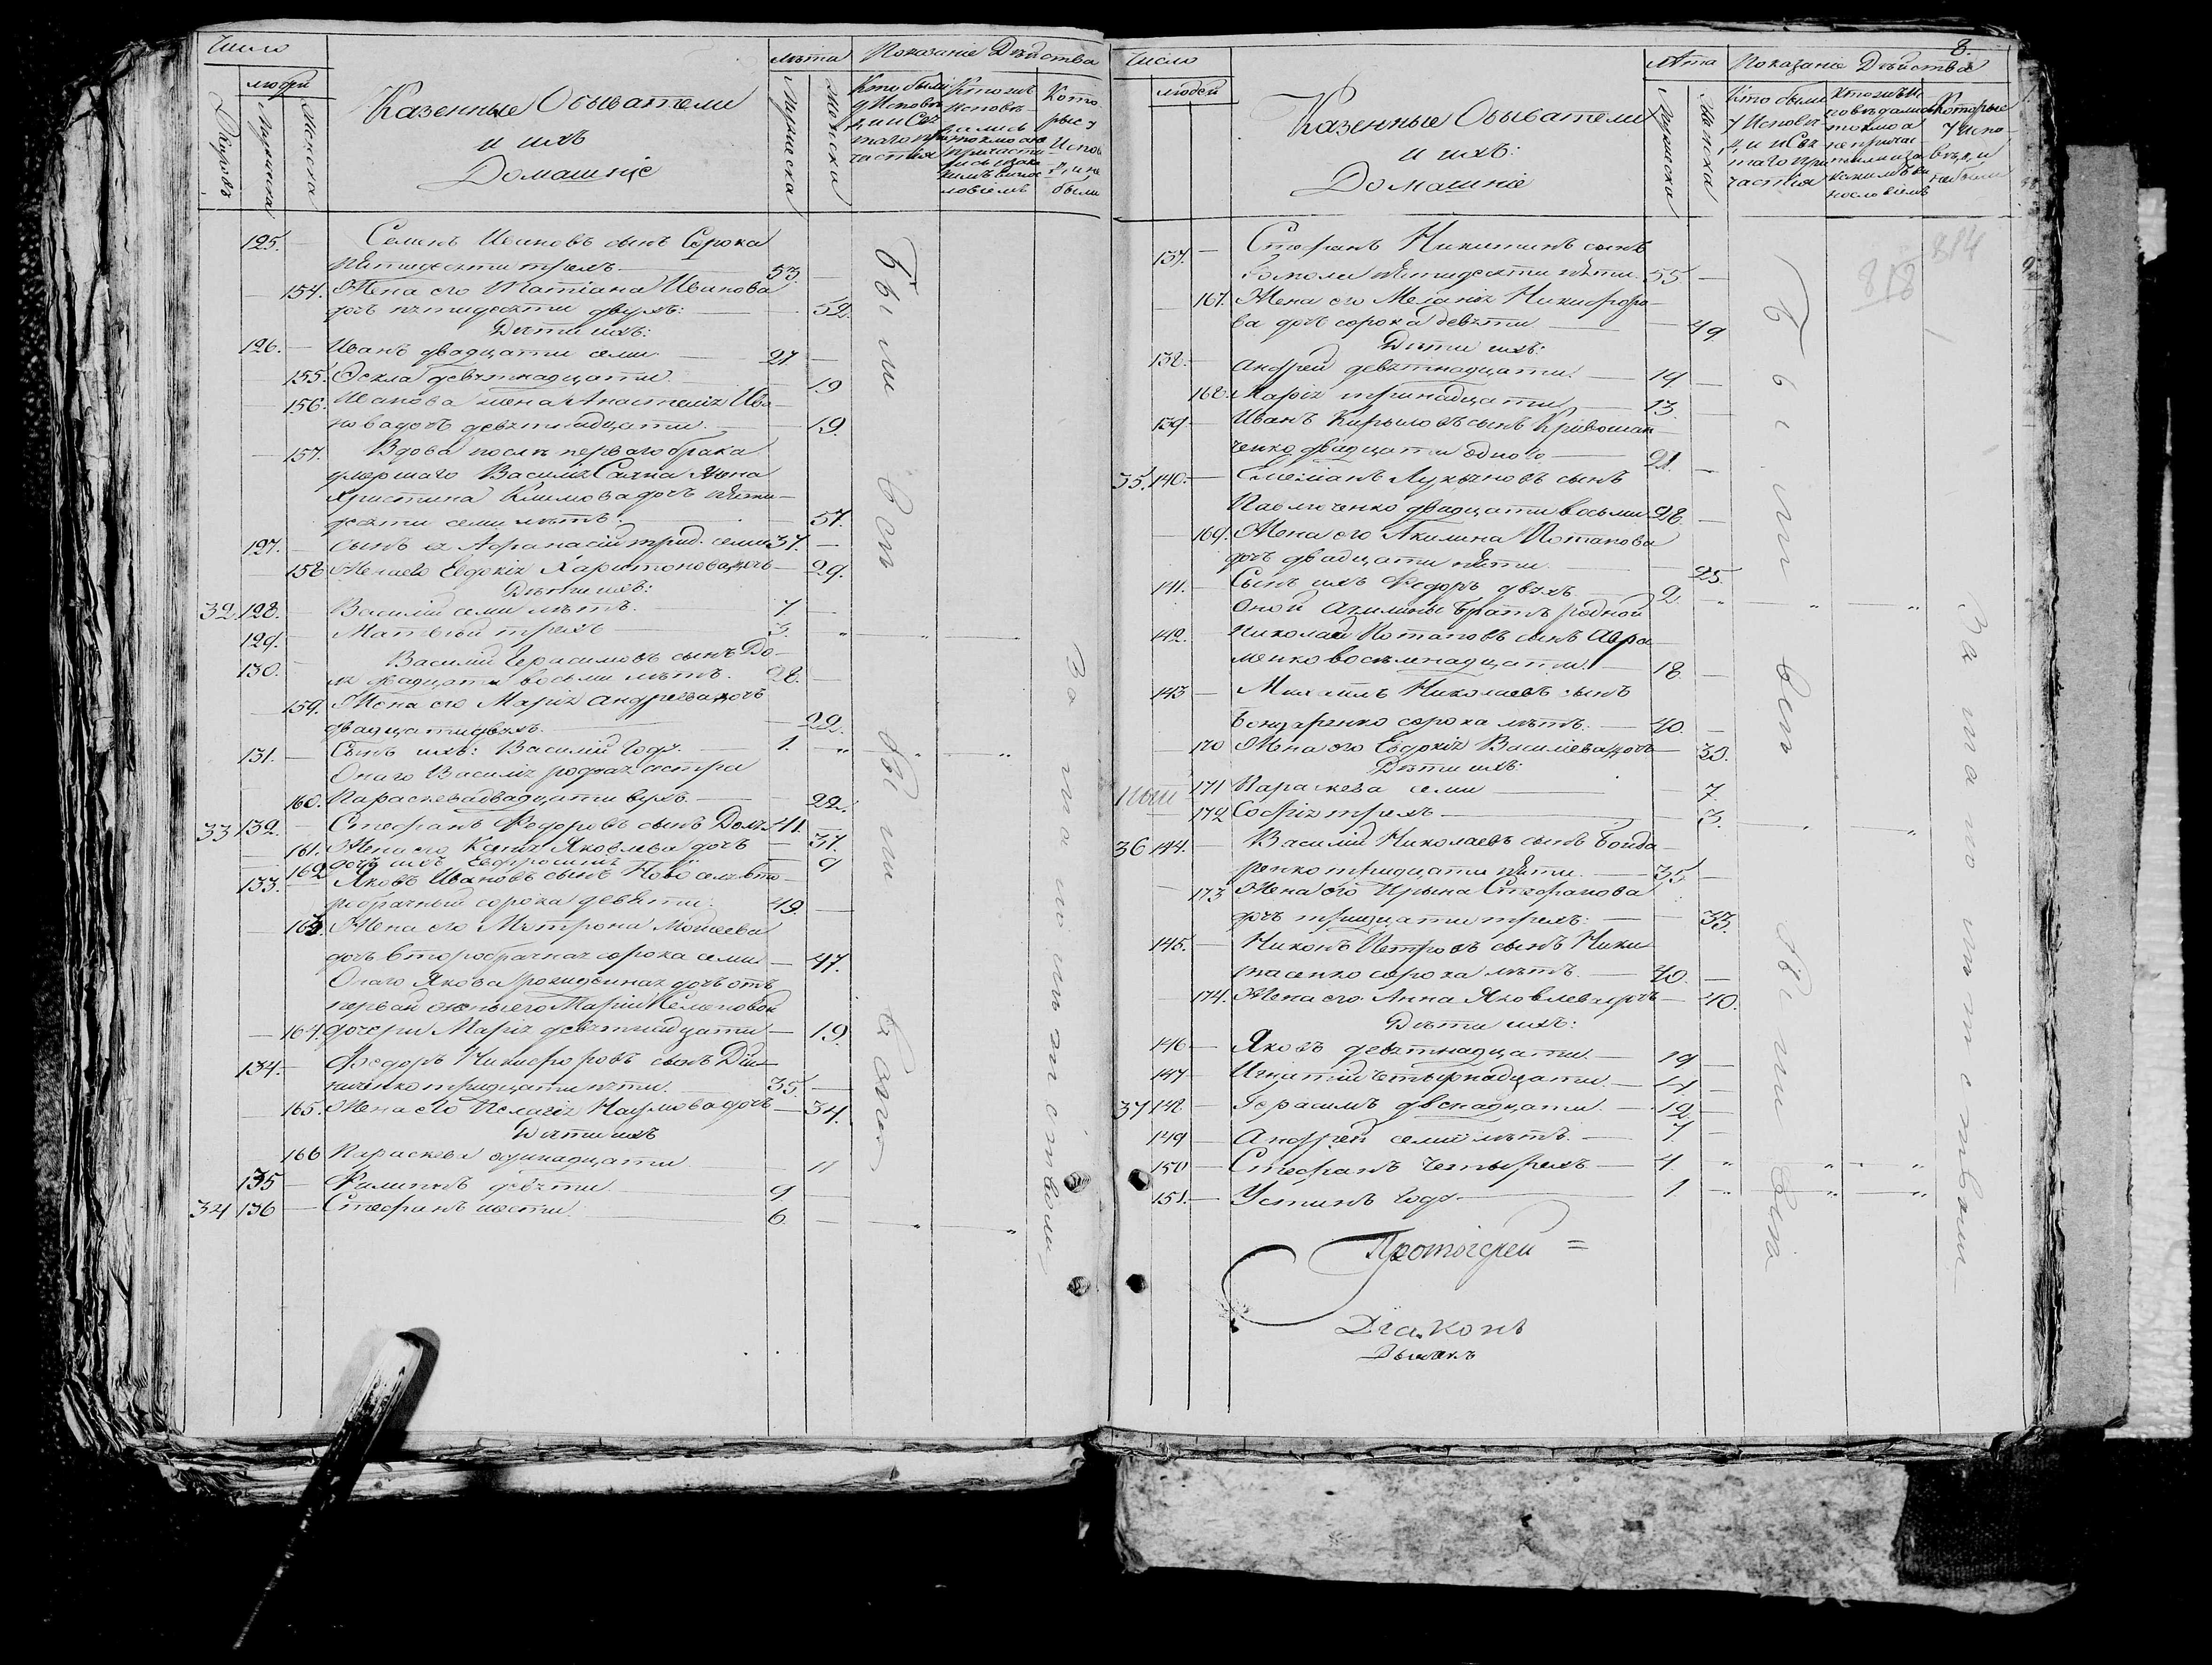 Число
людей
Дворовъ
Мужеска
Женска
Казенные Обыватели
и ихъ
Домашніе
лѣта
Мужеска
Женска
Показаніе Дѣйства
Кто были
у Исповѣ
ди и Свя
таго при
частія
Кто же
исповѣ
дались
токмо а не
причасти
лись и за ка
кимъ винос
ловіемъ
Кото
рые у
Испов
ди не
были
125. Семенъ Ивановъ сынъ Сорока
пятидесяти трехъ 53.
154. Жена его Татіана Иванова
дочь пятидесяти двухъ: 52.
Дѣти ихъ:
126. Иванъ двадцати семи 27.
155. Фекла девятнадцати 19
156. Иванова жена Анастасія Ива-
нова дочь девятнадцати. 19.
157. Вдова послѣ перваго брака
умершаго Василія жена
Христина Климова дочь пяти-
десяти семи лѣтъ: 57.
127. Сынъ ея Афанасій трид. семи 37.
158 Жена его Евдокія Харитонова дочь 29.
Дѣти ихъ:
32 128. Василій семи лѣтъ. 7
129. Матвѣй трехъ 3. " " "
130. Василій Герасимовъ сынъ До-
ля двадцати восьми лѣтъ. 28.
159. Жена его Марія Андреева дочь
двадцати двухъ. 22.
131. Сынъ ихъ: Василій года. 1. " " "
Онаго Василія родная сестра
160. Параскева двадцати двухъ. 22.
33 132. Стефанъ Федоровъ сынъ Доля 41.
161. Жена его Ксенія Яковлева дочь 37.
162 дочь ихъ Евфросинія 9
133. Яковъ Ивановъ сынъ вто-
робрачный сорока девяти: 49.
163. Жена его Матрона Моисеева
дочь второбрачная сорока семи 47.
Онаго Якова рожденная дочь отъ
первой жены его Маріи
164. дочери Марія девятнадцати 19.
134. Федоръ Никифоровъ сынъ
ниченко тридцати пяти. 35.
165. Жена его Пелагія Наумова дочь 34.
Дѣти ихъ
166 Параскева одинадцати 11
135 Филипъ девяти 9
34 136 Стефанъ шести 6. " "
Были вси
были вси
За
8.
Число
людей
Казенные Обыватели
и ихъ:
Домашніе
лѣта
Мужеска
Женска
Показаніе Дѣйства
Кто были
у Исповѣ
ди и Свя
таго при
частія
Кто же ис
повѣдались
токмо а
не причас
тились и за
какимъ ви
нословіемъ
Которые
у Испо
вѣди
не были
814
818
137. Стефанъ Никитинъ сынъ
пятидесяти пяти. 55
167. Жена его Меланія Никифоро-
ва дочь сорока девяти 49
Дѣти ихъ:
138. Андрей девятнадцати. 19.
168. Марія тринадцати 13.
139 Иванъ Кириловъ сынъ
ченко двадцати одного 21.
35. 140. сынъ
Павличенко двадцати восьми 28.
169. Жена его Акилина Потапова
дочь двадцати пяти. 25.
141. Сынъ ихъ Федоръ двухъ 2. " " "
Оной Акилины братъ родной
142. Николай Потаповъ сынъ Авра-
менко восемнадцати. 18.
143 Михаилъ Николаевъ сынъ
Бондаренко сорока лѣтъ. 40.
170 Жена его Евдокія Василіева дочь 30.
Дѣти ихъ:
171 Параскева семи 7.
172 Софія трехъ 3. " "
36 144. Василій Николаевъ сынъ Бонда-
ренко тридцати пяти. 35
173 Жена его Ирина Стефанова
дочь тридцати трехъ: 33.
145. Никонъ Петровъ сынъ Ники
тасенко сорока лѣтъ. 40.
174. Жена его Анна Яковлева дочь 40.
Дѣти ихъ:
146 Яковъ девятнадцати. 19
147 Игнатій четырнадцати. 14
37 148 Герасимъ двенадцати. 12.
149 Андрей семи лѣтъ. 7.
150 Стефанъ четырехъ 4. " " "
151. Устинъ года 1 " " "
Были вси
были вси
За
Протоіерей =
Діаконъ